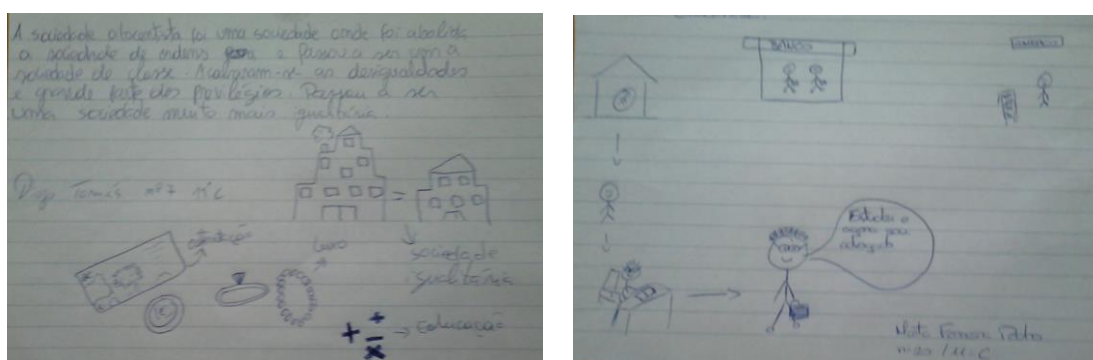 A sociedade oitocentista foi uma sociedade onde foi abolida
a sociedade de ordens e passou a ser uma
sociedade de classe. Acabaram-se as desigualdades
e grande parte dos previlégios. Passou a ser
uma sociedade muito mais
Tomás nº7 11ºC
=
sociedade
luxo
+ ÷ - x → educação
BANCO
Estudei e
agora sou
advogado
Pedro
11ºC